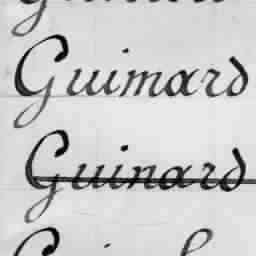 Guimard
Guinard